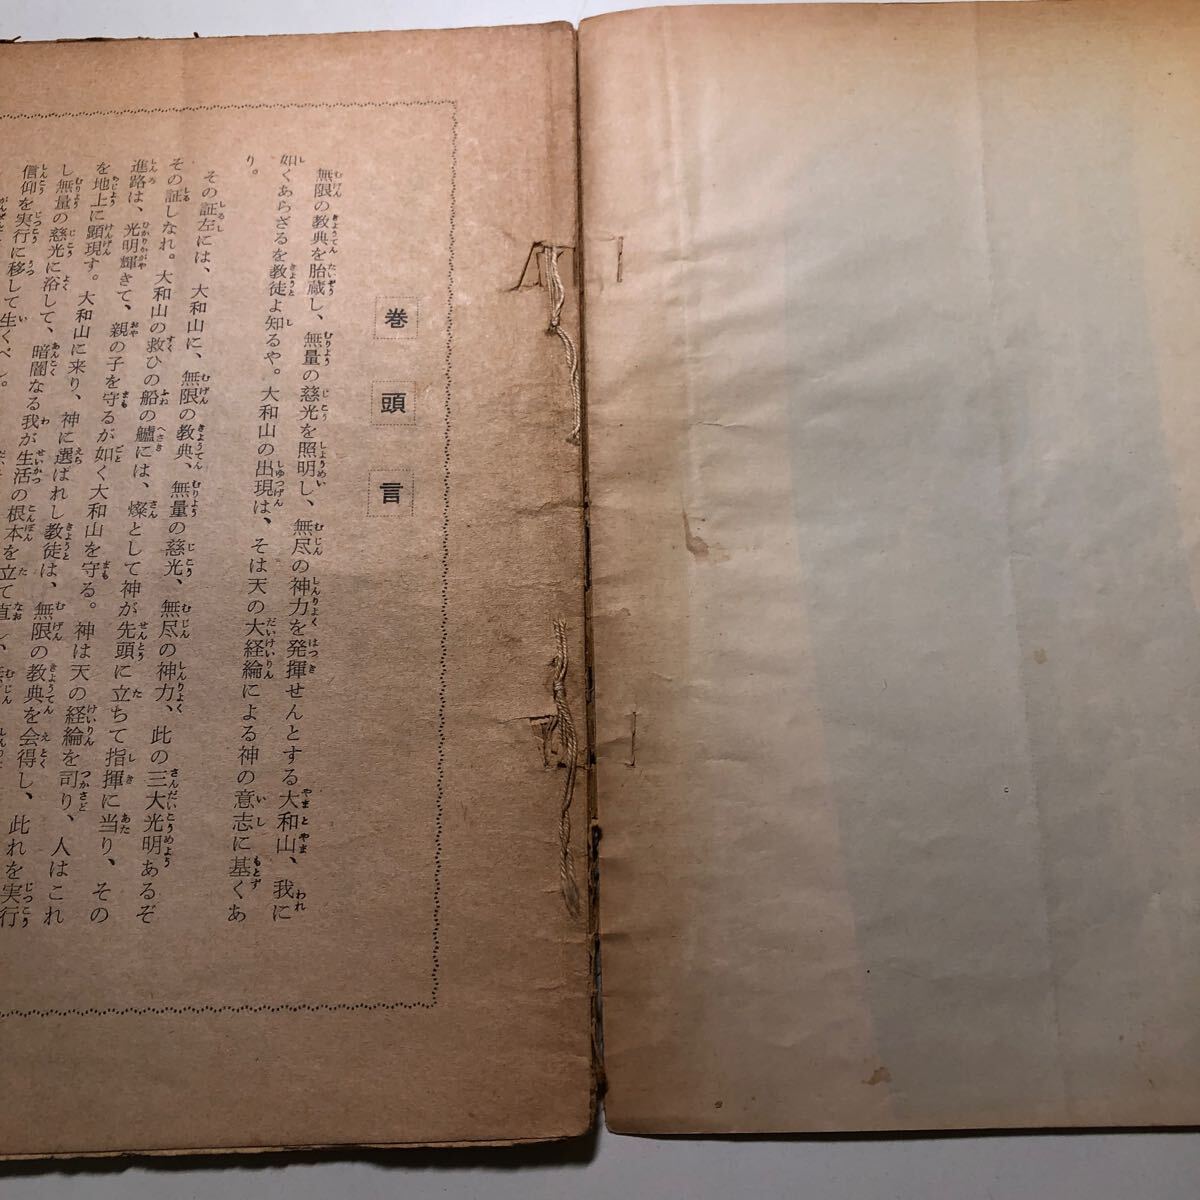 巻頭言
無限の教典を胎蔵し、無量の慈光を照明し、無尽の神力を発揮せんとする大和山、我に
如くあらざるを教徒よ知るや。大和山の出現は、そは天の大経綸による神の意志に基くあ
り。
その証左には、大和山に、無限の教典、無量の慈光、無尽の神力、此の三大光明あるぞ
その証しなれ。大和山の救ひの船の艫には、燦として神が先頭に立ちて指揮に当り、その
進路は、光明輝きて、親の子を守るが如く大和山を守る。神は天の経綸を司り、人はこれ
を地上に顕現す。大和山に来り、神に選ばれし教徒は、無限の教典を会得し、此れを実行
し無量の慈光に浴して、暗闇なる我が生活の根本を立て直し、
信仰を実行に移して生くべし。